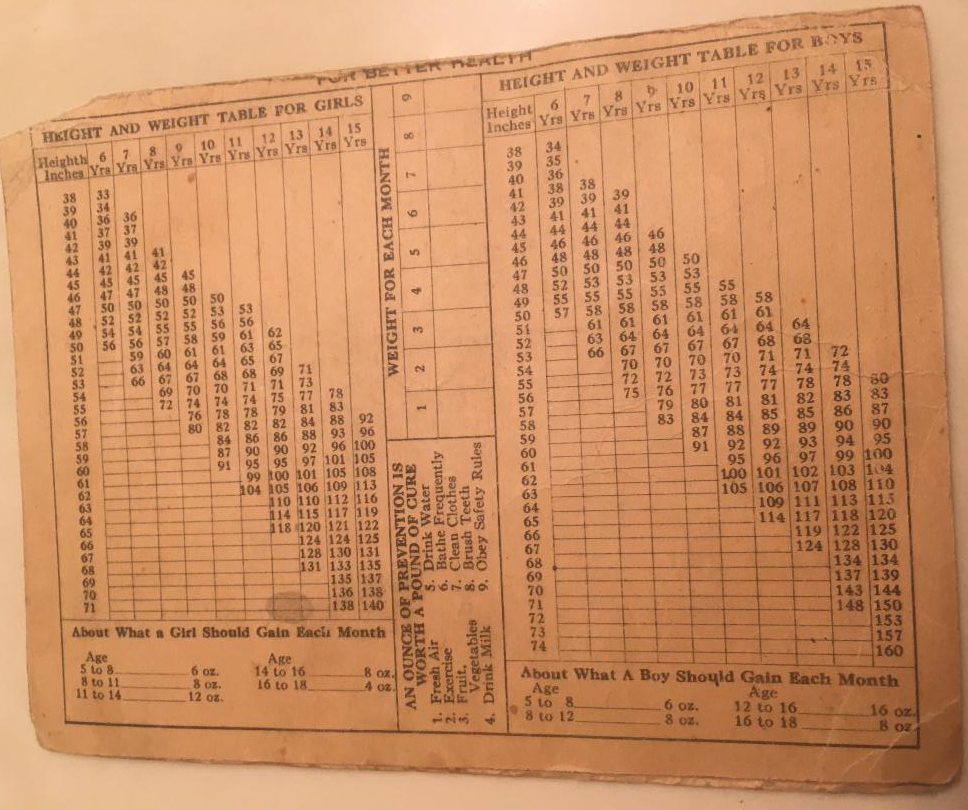 FOR BETTER HEALTH
HEIGHT AND WEIGHT TABLE FOR GIRLS
Heighth Inches 6 Yrs 7 Yrs 8 Yrs 9 Yrs 10 Yrs 11 Yrs 12 Yrs 13 Yrs 14 Yrs 15 Yrs
38 33
39 34
40 36 36
41 37 37
42 39 39
43 41 41 41
44 42 42 42
45 45 45 45 45
46 47 47 48 48
47 50 50 50 50 50
48 52 52 52 52 53 53
49 54 54 55 55 56 56
50 56 56 57 58 59 61 62
51 59 60 61 61 63 65
52 63 64 64 64 65 67
53 66 67 67 68 68 69 71
54 69 70 70 71 71 73
55 72 74 74 74 75 77 78
56 76 78 78 79 81 83
57 80 82 82 82 84 88 92
58 84 86 86 88 93 96
59 87 90 90 92 96 100
60 91 95 95 97 101 105
61 99 100 101 105 108
62 104 105 106 109 113
63 110 110 112 116
64 114 115 117 119
65 118 120 121 122
66 124 124 125
67 128 130 131
68 131 133 135
69 135 137
70 136 138
71 138 140
About What a Girl Should Gain Each Month
Age Age
5 to 8 6 oz. 14 to 16 8 oz.
8 to 11 8 oz. 16 to 18 4 oz.
11 to 14 12 oz.
WEIGHT FOR EACH MONTH
1 2 3 4 5 6 7 8 9
AN OUNCE OF PREVENTION IS
WORTH A POUND OF CURE
1. Fresh Air
2. Exercise
3. Fruit, Vegetables
4. Drink Milk
5. Drink Water
6. Bathe Frequently
7. Clean Clothes
8. Brush Teeth
9. Obey Safety Rules
HEIGHT AND WEIGHT TABLE FOR BOYS
Height Inches 6 Yrs 7 Yrs 8 Yrs 9 Yrs 10 Yrs 11 Yrs 12 Yrs 13 Yrs 14 Yrs 15 Yrs
38 34
39 35
40 36
41 38 38
42 39 39 39
43 41 41 41
44 44 44 44
45 46 46 46 46
46 48 48 48 48
47 50 50 50 50 50
48 52 53 53 53 53
49 55 55 55 55 55 55
50 57 58 58 58 58 58 58
51 61 61 61 61 61 61
52 63 64 64 64 64 64 64
53 66 67 67 67 67 68 68
54 70 70 70 70 71 71 72
55 72 72 73 73 74 74 74
56 75 76 77 77 77 78 78 80
57 79 80 81 81 82 83 83
58 83 84 84 85 85 86 87
59 87 88 89 89 90 90
60 91 92 92 93 94 95
61 95 96 97 99 100
62 100 101 102 103 104
63 105 106 107 108 110
64 109 111 113 115
65 114 117 118 120
66 119 122 125
67 124 128 130
68 134 134
69 137 139
70 143 144
71 148 150
72 153
73 157
74 160
About What A Boy Should Gain Each Month
Age Age
5 to 8 6 oz. 12 to 16 16 oz.
8 to 12 8 oz. 16 to 18 8 oz.